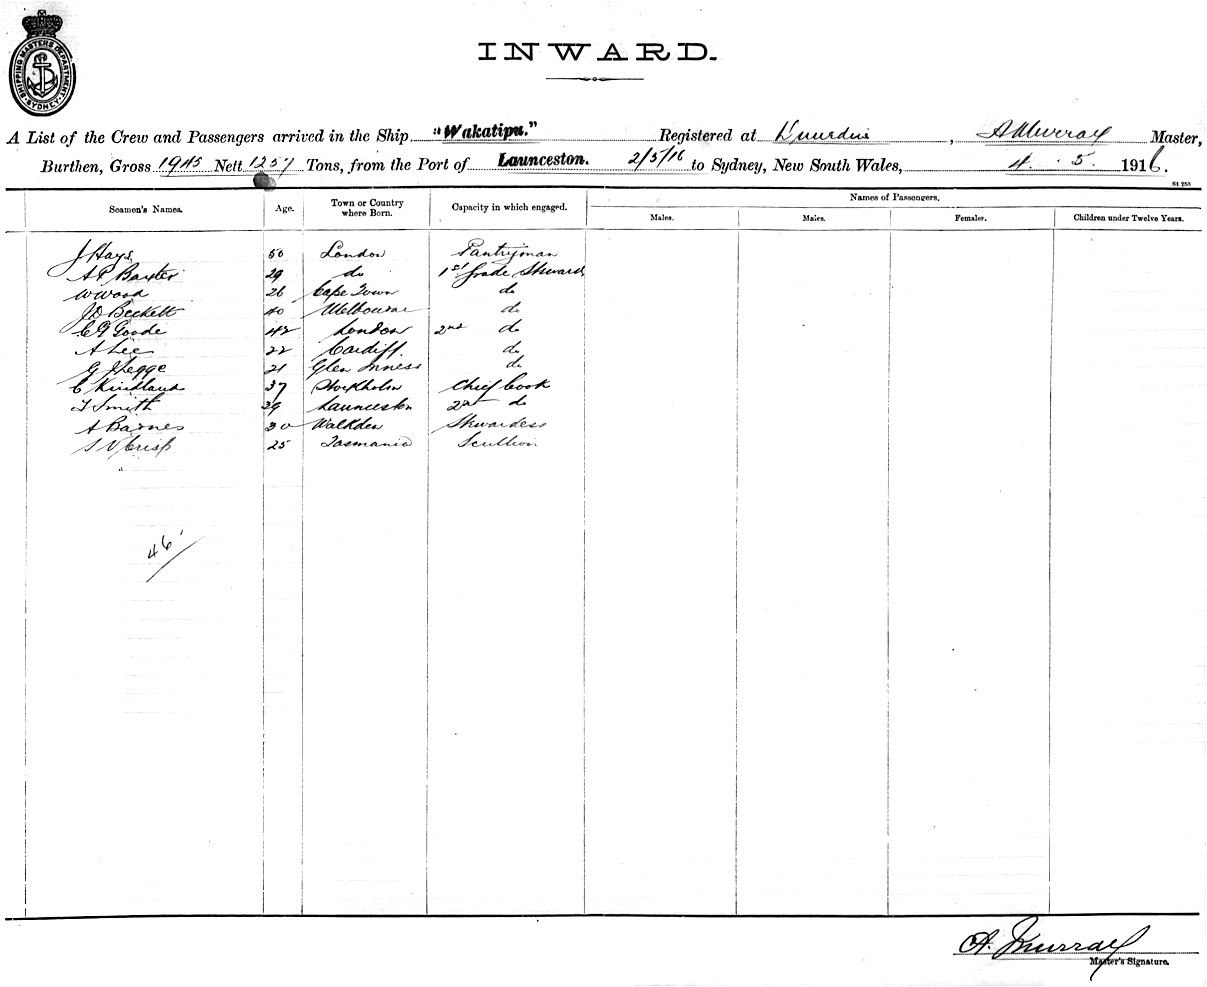 SHIPPING MASTERS DEPARTMENT SYDNEY
INWARD.
A List of the Crew and Passengers arrived in the Ship "Wakatipu." Registered at Dunedin, A Murray Master,
Burthen, Gross 1945 Nett 1257 Tons, from the Port of Launceston. 2/5/16 to Sydney, New South Wales, 4. 5. 1916.
St 250
Seamen's Names. Age. Town or Country where Born. Capacity in which engaged. Names of Passengers.
Males. Males. Females. Children under Twelve Years.
J Hays 50 London Pantryman
A P Baxter 29 do 1st grade Steward
W Wood 26 Cape Town do
J D Beckett 40 Melbourne do
C G Goode 42 London 2nd do
A Lee 22 Cardiff. do
G J Legge 21 Glen Inness do
C Kindland 37 Stockholm Chief Cook
T Smith 39 Launceston 2nd do
A Barnes 30 Walkden Stewardess
S V Crisp 25 Tasmania Scullion
46
A. Murray
Master's Signature.